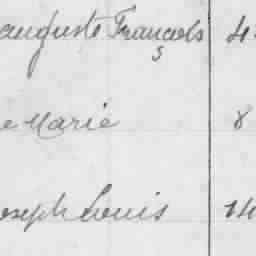 auguste François 4
e Marie 8
oseph Louis 14